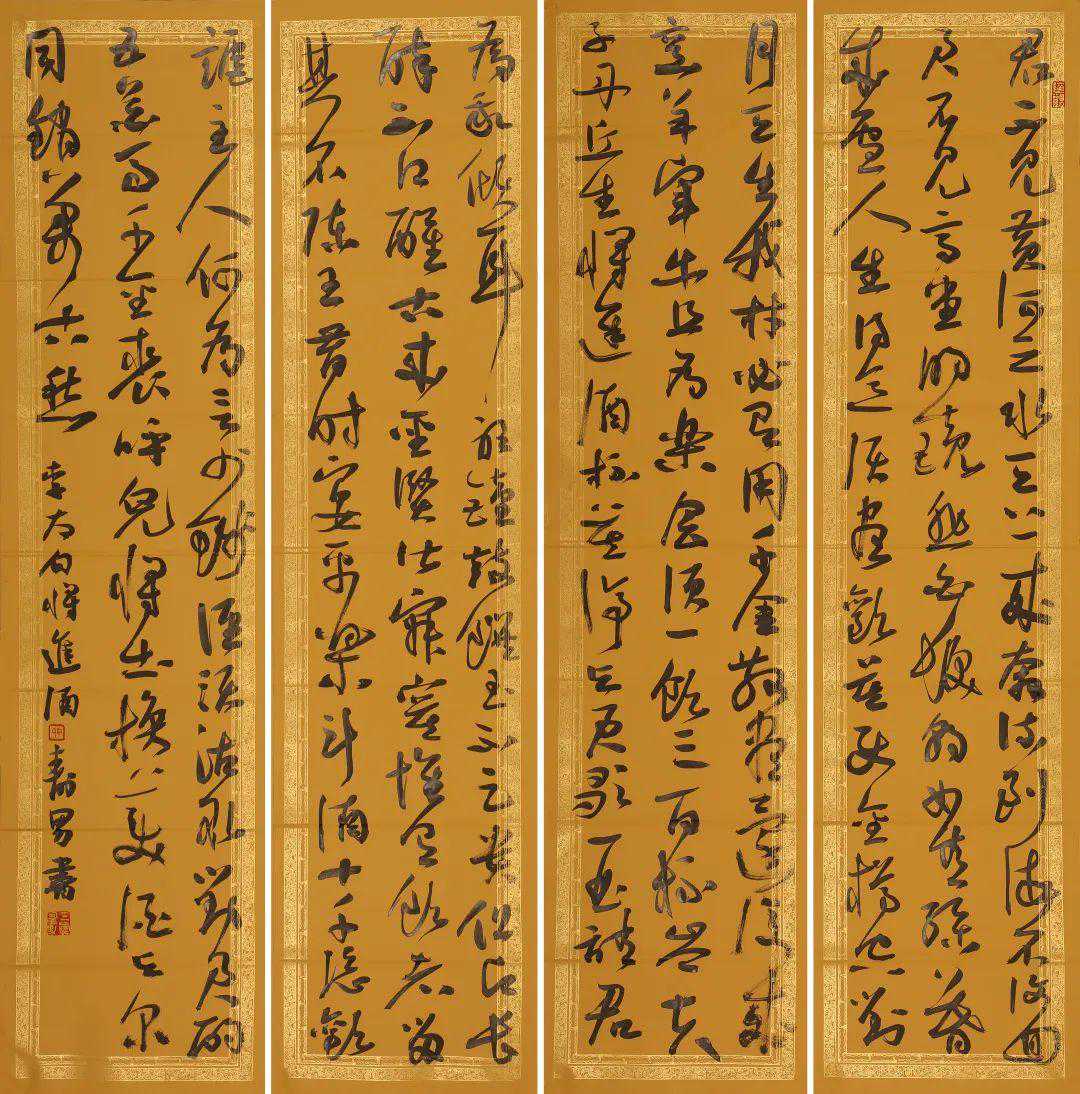 君不見黃河之水天上來奔流到海不復回
君不見高堂明鏡悲白髮朝如青絲暮
成雪人生得意須盡歡莫使金樽空對
月天生我材必有用千金散盡還復來
烹羊宰牛且為樂會須一飲三百杯岑夫
子丹丘生將進酒杯莫停與君歌一曲請君
為我傾耳聽鐘鼓饌玉不足貴但願長
醉不願醒古來聖賢皆寂寞惟有飲者留
其名陳王昔時宴平樂斗酒十千恣歡
謔主人何為言少錢徑須沽取對君酌
五花馬千金裘呼兒將出換美酒與爾
同銷萬古愁 李太白將進酒 壽男書